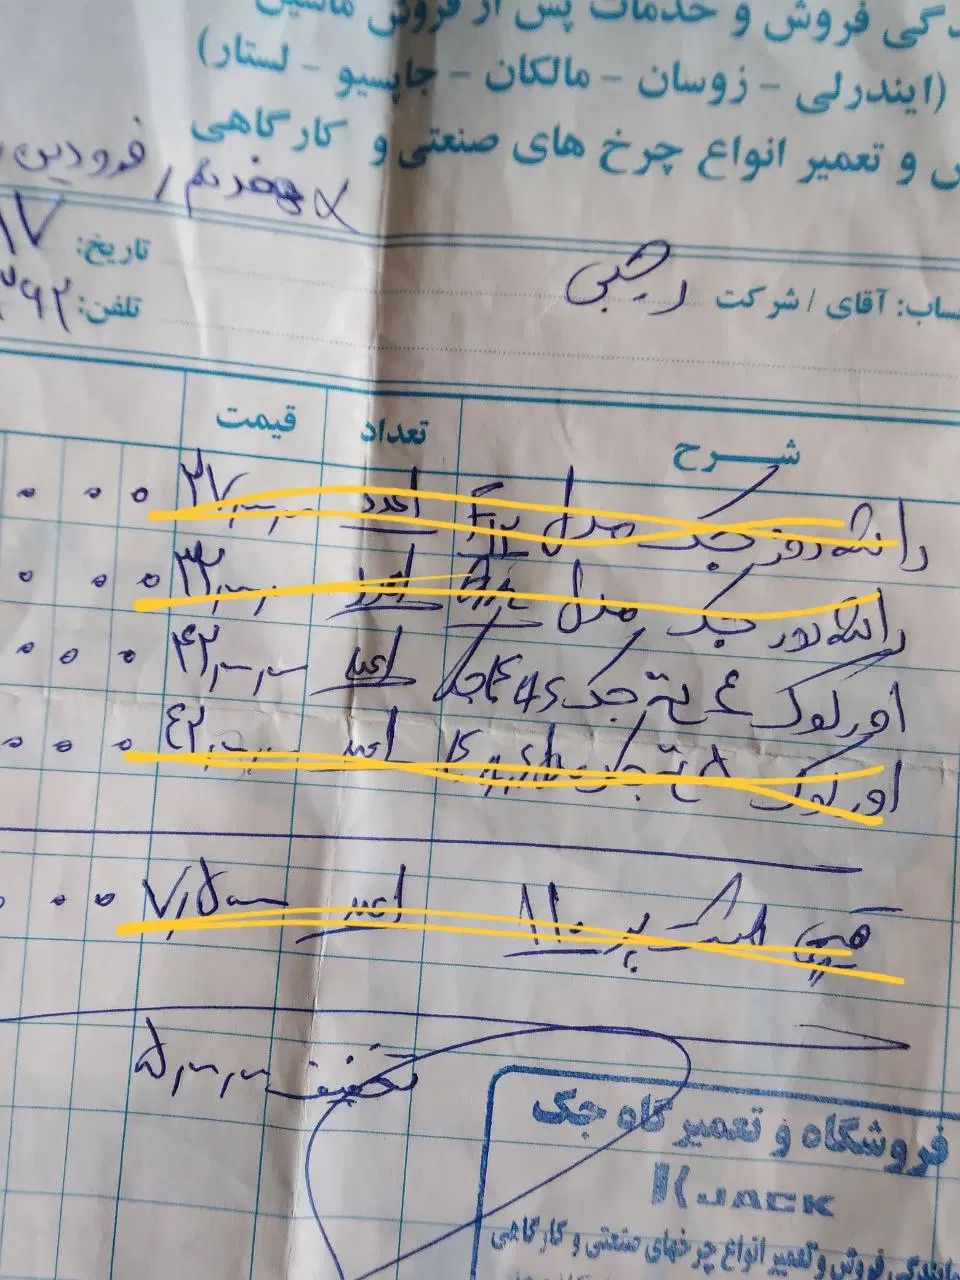 گی فروش و خدمات پس از فروش ماشین
(ایندرلی - زوسان - مالکان - جاپسیو - لستار)
و تعمیر انواع چرخ های صنعتی و کارگاهی
فرودین
تاریخ: ۱۷
ساب: آقای / شرکت رجبی
تلفن: ۲۹۲
شرح تعداد قیمت
راسته دوز جک مدل F4 ۱عدد ۲۷,۰۰۰ ۰۰۰
راسته دوز جک مدل ۱عدد ۳۳,۰۰۰ ۰۰۰
اورلوک ۴ نخ جک ۱عدد ۴۲,۰۰۰ ۰۰۰
اورلوک ۵ نخ جک ۱عدد ۴۲,۰۰۰ ۰۰۰
قیچی پر ۱۱۰ ۱عدد ۷,۵۰۰ ۰۰۰
تخفیف ۵,۰۰۰
فروشگاه و تعمیر گاه جک
JACK
فروش و تعمیر انواع چرخهای صنعتی و کارگاهی